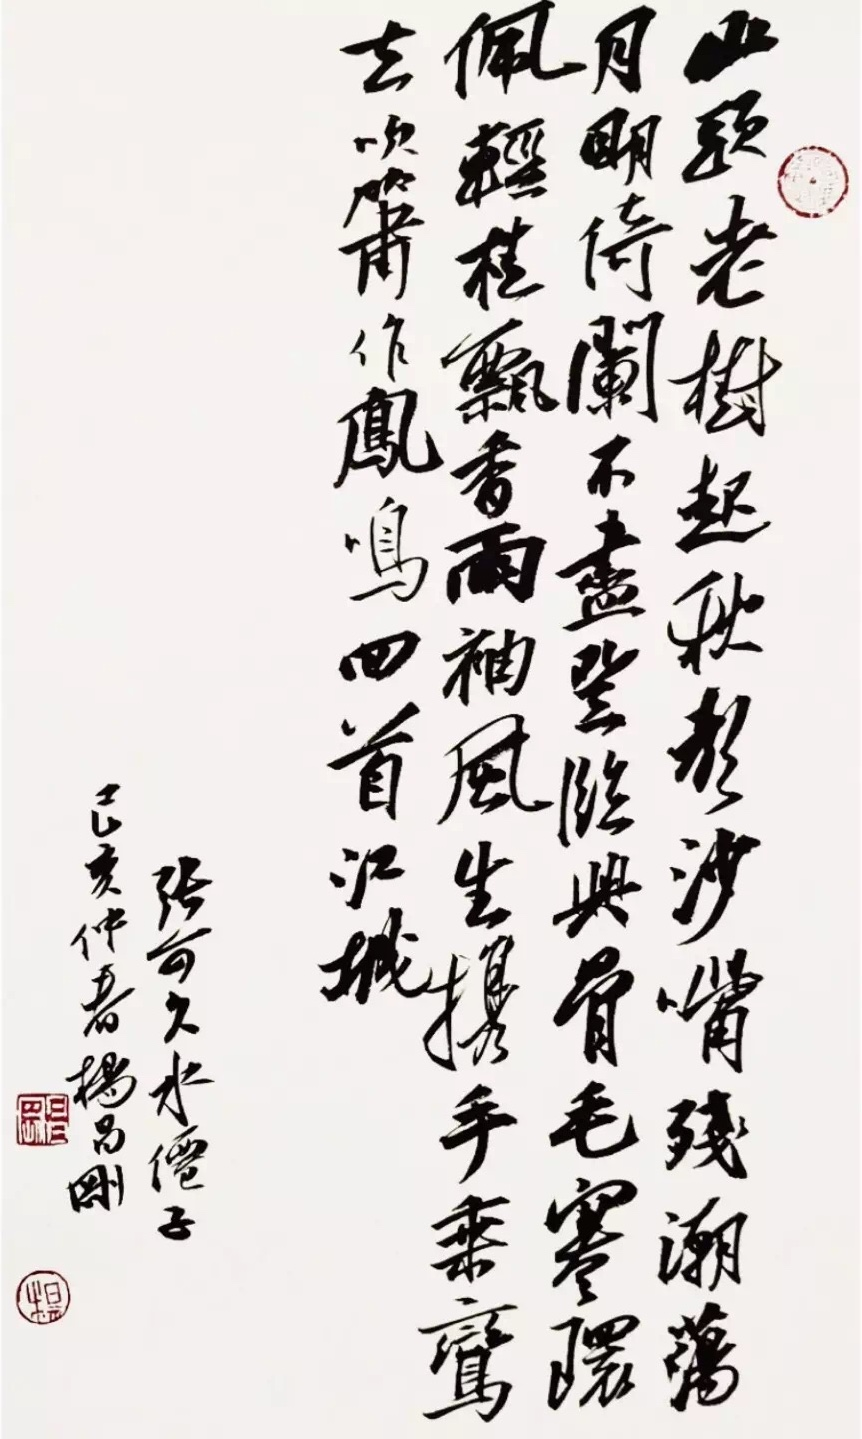 山頭老樹起秋聲沙嘴殘潮蕩
月明倚闌不盡登臨興骨毛寒環
佩輕桂飄香兩袖風生攜手乘鸞
去吹簫作鳳鳴回首江城
張可久水僊子
己亥仲春楊昌剛